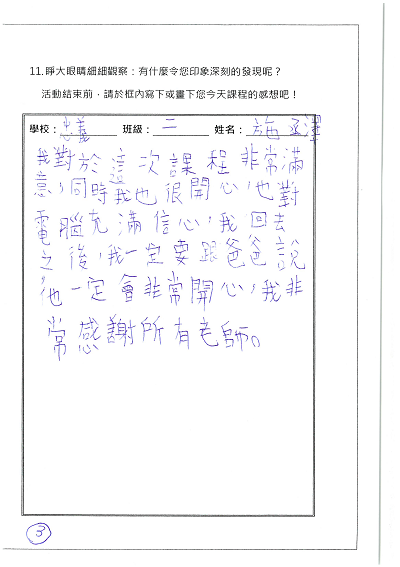 11.睜大眼睛細細觀察：有什麼令您印象深刻的發現呢？
活動結束前，請於框內寫下或畫下您今天課程的感想吧！
學校：忠義 班級：二 姓名：施丞澤
我對於這次課程非常滿
意，同時我也很開心，也對
電腦充滿信心，我回去
之後，我一定要跟爸爸說
，他一定會非常開心，我非
常感謝所有老師。
3